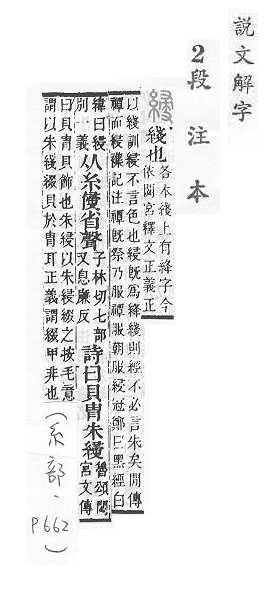 說文解字
2段注本
綫也 各本綫上有絳字今
依閟宮釋文正義正
以綫訓綅不言色也綅旣爲絳綫則經不必言朱矣閒傳
禫而綅 記注禫旣祭乃服禫服朝服綅冠鄭曰黑經白
緯曰綅別一義 从糸侵省聲 子林切七部又息廉反 詩曰貝冑朱綅 魯頌閟宮文傳
曰貝冑貝飾也朱綅以朱綅綴之按毛意
謂以朱綫綴貝於冑耳正義謂綴甲非也
(糸部、P662)